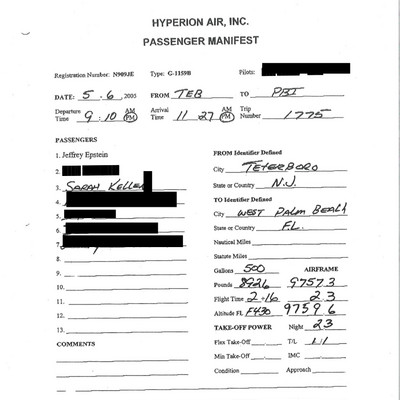 HYPERION AIR, INC.
PASSENGER MANIFEST
Registration Number: N909JE Type: G-1159B Pilots:
DATE: 5.6, 2005 FROM TEB TO PBI
Departure Time 9:10 AM PM Arrival Time 11:27 AM PM Trip Number 1775
PASSENGERS
1. Jeffrey Epstein
2.
3. SARAH KELLEN
4.
5.
6.
7.
8.
9.
10.
11.
12.
13.
COMMENTS
FROM Identifier Defined
City TETERBORO
State or Country N.J.
TO Identifier Defined
City WEST PALM BEACH
State or Country FL.
Nautical Miles
Statute Miles
Gallons 500 AIRFRAME
Pounds 8926 9757.3
Flight Time 2+16 2.3
Altitude FL F430 9759.6
TAKE-OFF POWER Night 2.3
Flex Take-Off T/L 1/1
Min Take-Off IMC
Condition Approach